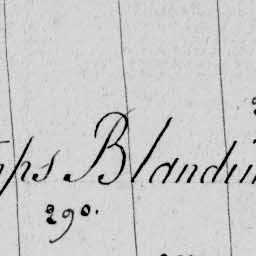 ps Blandin
290.